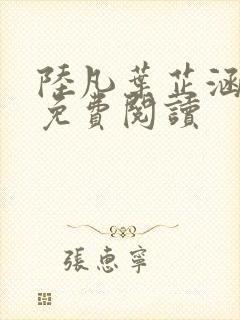 陸凡葉芷涵
免費閱讀
張惠寧